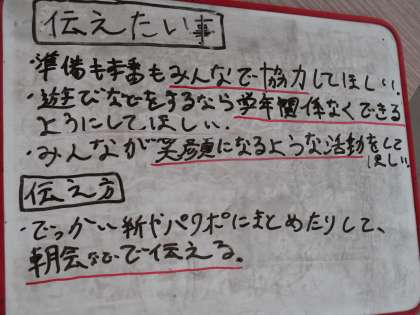 伝えたい事
・準備も本番もみんなで協力してほしい.
・遊びなどをするなら学年関係なくできる
ようにしてほしい.
・みんなが笑顔になるような活動をして
ほしい.
伝え方
・でっかい紙やパワポにまとめたりして、
朝会などで伝える。